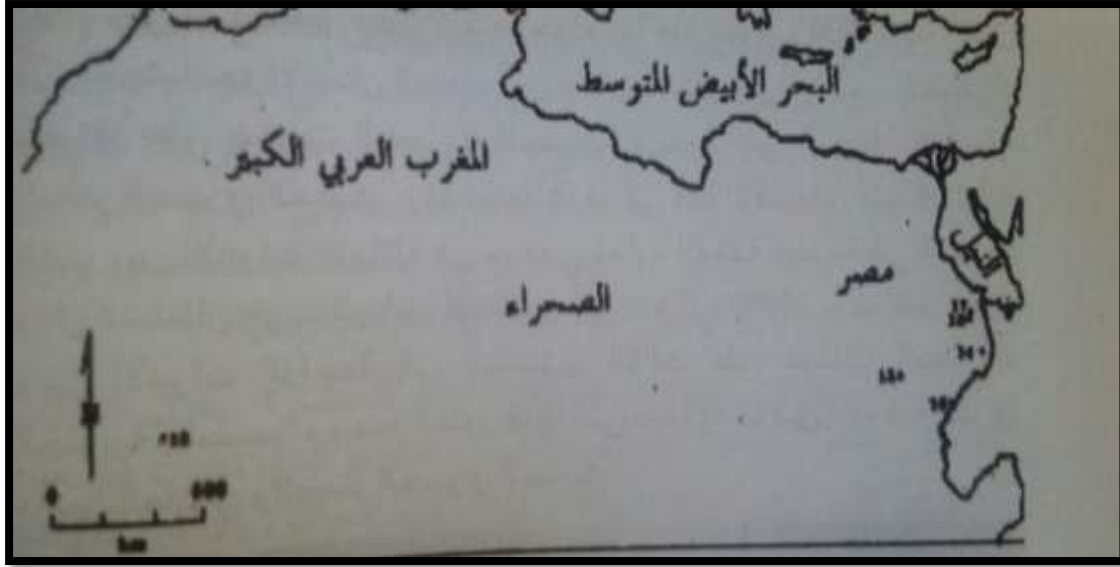 البحر الأبيض المتوسط
المغرب العربي الكبير
مصر
الصحراء
N
0 600
km